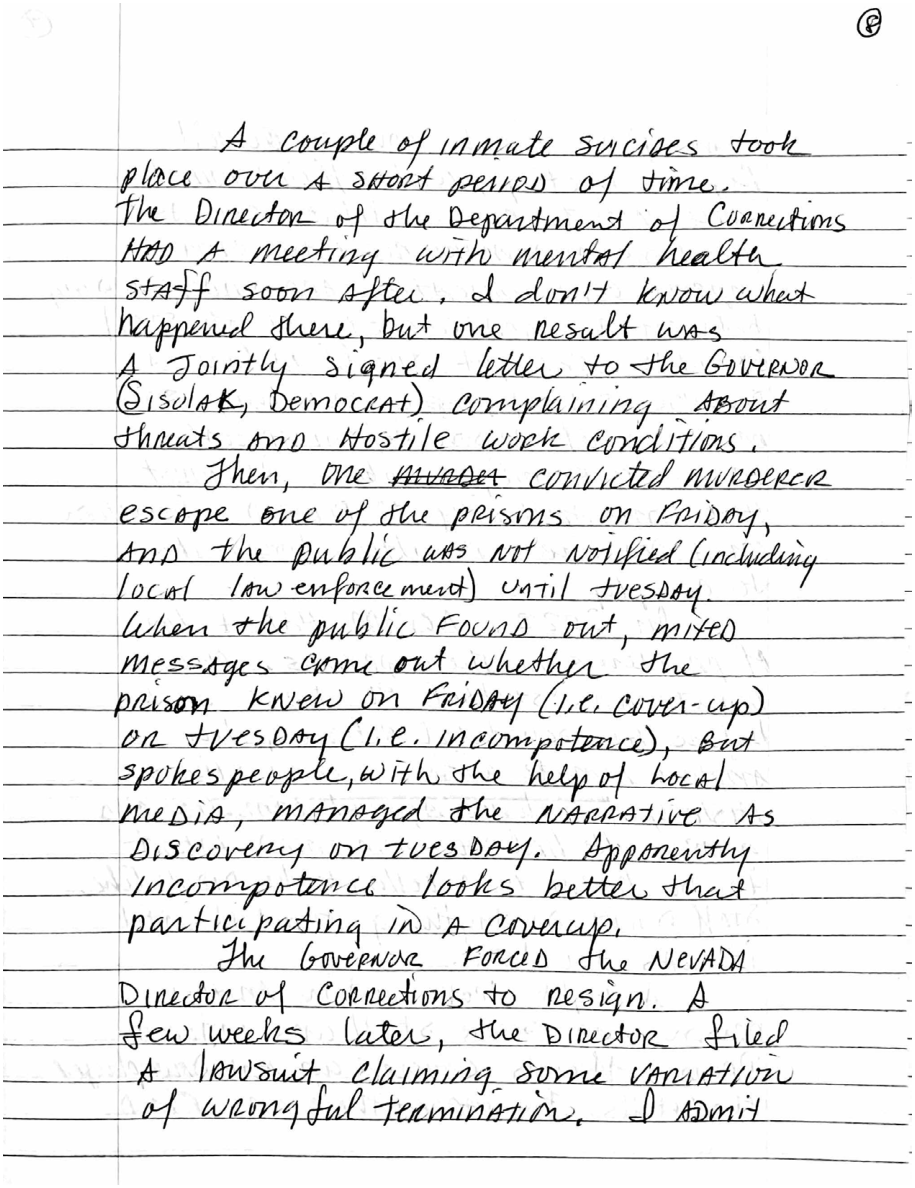 8
A couple of inmate suicides took
place over A SHORT PERIOD of time.
The Director of the Department of Corrections
HAD A meeting with mental health
STAff soon After. I don't know what
happened there, but one result was
A Jointly signed letter to the GOVERNOR
(Sisolak, Democrat) complaining About
threats AND Hostile work conditions.
Then, one murder convicted MURDERER
escape one of the prisons on FRIDAY,
AND the public was not notified (including
local law enforcement) until tuesday.
When the public FOUND out, mixed
messages came out whether the
prison knew on FRIDAY (i.e. cover-up)
or tuesday (i.e. incompotence), But
spokespeople, with the help of Local
media, managed the NARRATIVE As
Discovery on tuesday. Apparently
Incompotence looks better that
participating in A coverup.
The Governor FORCED the NEVADA
Director of Corrections to resign. A
few weeks later, the Director filed
A lawsuit claiming some VARIATION
of wrongful termination. I ADMIT